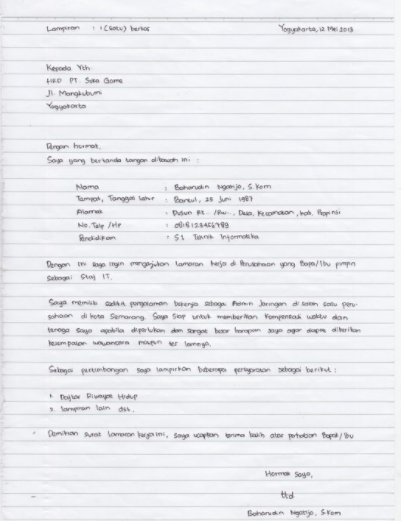 Lampiran : 1 (Satu) berkas Yogyakarta, 12 Mei 2013
Kepada Yth.
HRD PT. Suka Game
Jl. Mangkubumi
Yogyakarta
Dengan hormat,
Saya yang bertanda tangan dibawah ini :
Nama : Baharudin Ngatijo, S.Kom
Tempat, Tanggal lahir : Bantul, 25 Juni 1987
Alamat : Dusun Rt. /Rw.., Desa, Kecamatan, Kab, Propinsi
No. Telp /Hp : 0818123456789
Pendidikan : S1 Teknik Informatika
Dengan ini saya ingin mengajukan lamaran kerja di Perusahaan yang Bapa/Ibu pimpin
sebagai Staf IT.
Saya memiliki sedikit pengalaman bekerja sebagai Admin Jaringan di salah satu peru-
sahaan di kota Semarang. Saya Siap untuk memberikan kompensasi waktu dan
tenaga saya apabila diperlukan dan sangat besar harapan saya agar dapat diberikan
kesempatan wawancara maupun tes lainnya.
Sebagai pertimbangan saya lampirkan beberapa persyaratan sebagai berikut :
1. Daftar Riwayat Hidup
2. lampiran lain dst.
Demikian surat lamaran kerja ini, saya ucapkan terima kasih atas perhatian Bapak/Ibu
Hormat Saya,
ttd
Baharudin Ngatijo, S.Kom